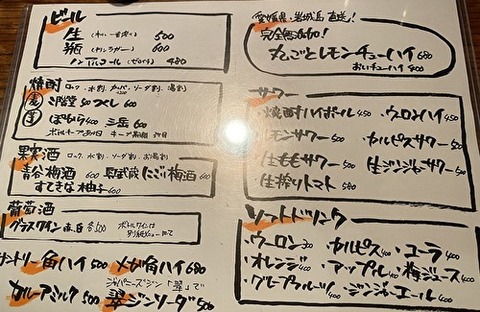 ビール
生 (キリン一番搾り) 500
瓶 (キリンラガー) 600
ノンアルコール (ゼロイチ) 480
焼酎 ロック、水割、ソーダ割、湯割
麦 つくし 600
芋 三岳 600
果実酒 ロック、水割、ソーダ割、お湯割
梅酒 600 にごり梅酒 600
すてきな柚子 600
葡萄酒
グラスワイン 赤、白 各500 ボトルワインは別紙メニューにて
サントリー角ハイ 500 メガ角ハイ 680
ジャパニーズジン「翠」で
カルーアミルク 500 翠ジンソーダ 500
愛媛県・岩城島 直送!
完全無添加!
丸ごとレモンチューハイ 680
おいチューハイ 400
サワー
・焼酎ハイボール 450 ・ウーロンハイ
・レモンサワー 500 ・カルピスサワー 500
・生ももサワー 500 ・生ジンジャーサワー 500
・生搾りトマト 580
ソフトドリンク
・ウーロン 300 ・カルピス 400 ・コーラ 400
・オレンジ 400 ・アップル 400 ・梅ジュース 400
・グレープフルーツ 400 ・ジンジャーエール 400